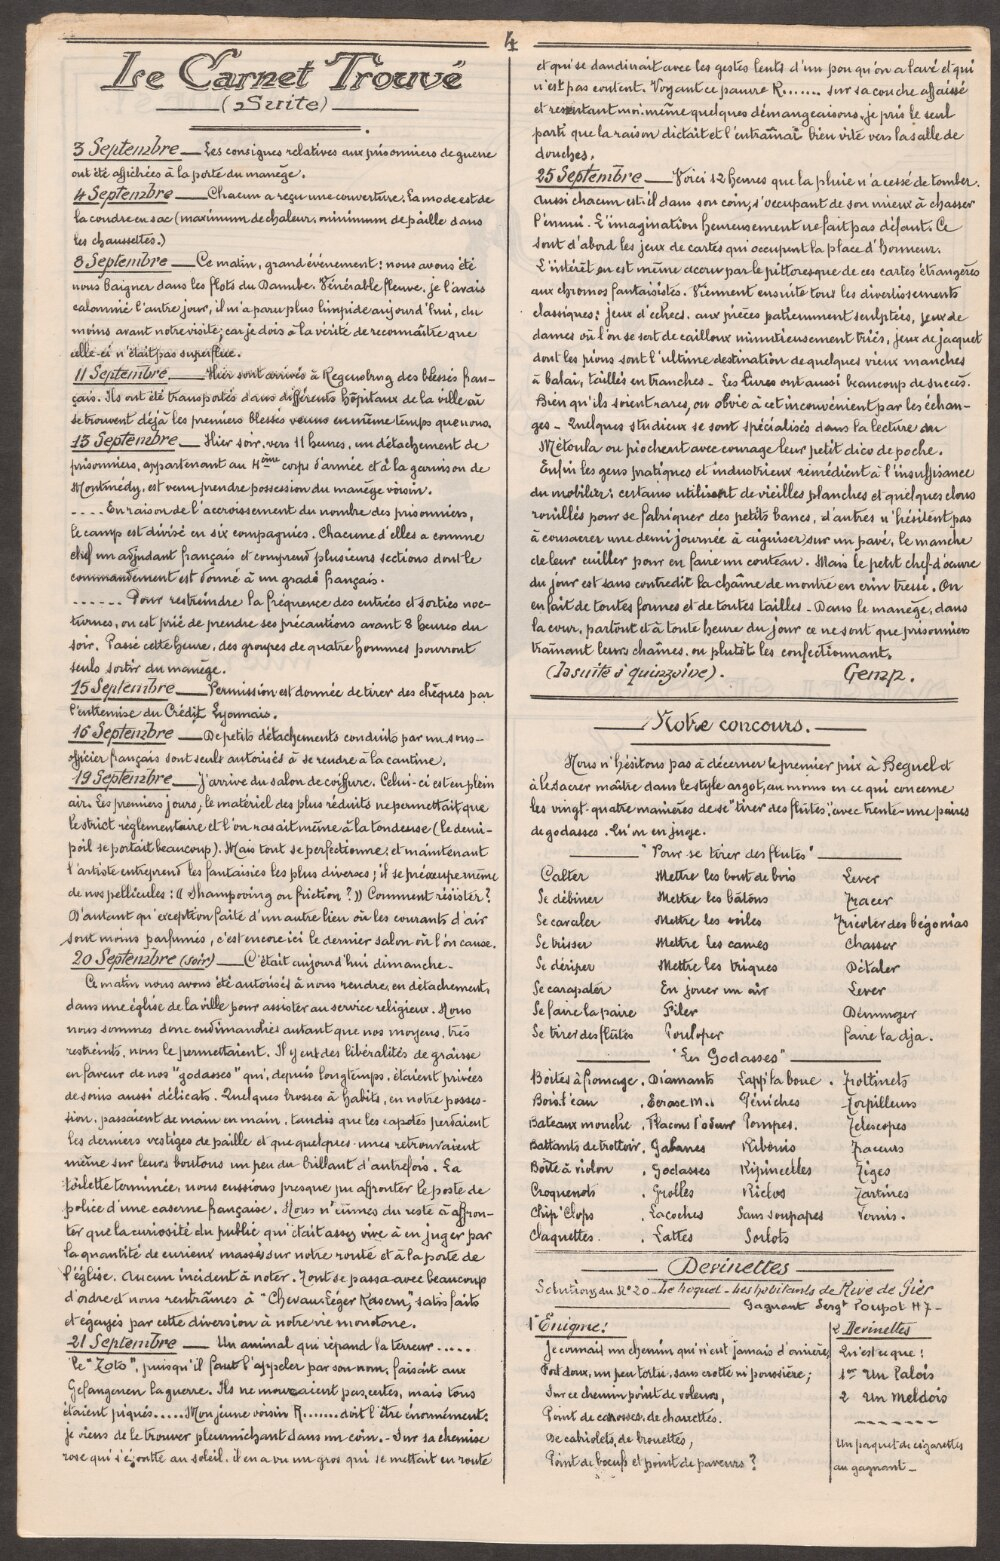 4
Le Carnet Trouvé
(Suite)
3 Septembre — Les consignes relatives aux prisonniers de guerre
ont été affichées à la porte du manège.
4 Septembre — Chacun a reçu une couverture. La mode est de
la coudre en sac (maximum de chaleur, minimum de paille dans
les chaussettes.)
8 Septembre — Ce matin, grand événement: nous avons été
nous baigner dans les flots du Danube. Vénérable fleuve, je l'avais
calomnié l'autre jour, il m'a paru plus limpide aujourd'hui, du
moins avant notre visite; car je dois à la vérité de reconnaître que
celle-ci n'était pas superflue.
11 Septembre — Hier sont arrivés à Regensburg des blessés fran-
çais. Ils ont été transportés dans différents hôpitaux de la ville où
se trouvent déjà les premiers blessés venus en même temps que nous.
13 Septembre — Hier soir, vers 11 heures, un détachement de
prisonniers, appartenant au 4ème corps d'armée et à la garnison de
Montmédy, est venu prendre possession du manège voisin.
.... En raison de l'accroissement du nombre des prisonniers,
le camp est divisé en six compagnies. Chacune d'elles a comme
chef un adjudant français et comprend plusieurs sections dont le
commandement est donné à un gradé français.
...... Pour restreindre la fréquence des entrées et sorties noc-
turnes, on est prié de prendre ses précautions avant 8 heures du
soir. Passé cette heure, des groupes de quatre hommes pourront
seuls sortir du manège.
15 Septembre — Permission est donnée de tirer des chèques par
l'entremise du Crédit Lyonnais.
16 Septembre — De petits détachements conduits par un sous-
officier français sont seuls autorisés à se rendre à la cantine.
19 Septembre — J'arrive du salon de coiffure. Celui-ci est en plein
air. Les premiers jours, le matériel des plus réduits ne permettait que
le strict réglementaire et l'on rasait même à la tondeuse (le demi-
poil se portait beaucoup). Mais tout se perfectionne; et maintenant
l'artiste entreprend les fantaisies les plus diverses; il se préoccupe même
de nos pellicules: (( Shampooing ou friction? )) Comment résister?
D'autant qu'exception faite d'un autre lieu où les courants d'air
sont moins parfumés, c'est encore ici le dernier salon où l'on cause.
20 Septembre (soir) — C'était aujourd'hui dimanche.-
Ce matin nous avons été autorisés à nous rendre, en détachement,
dans une église de la ville pour assister au service religieux. Nous
nous sommes donc endimanchés autant que nos moyens, très
restreints, nous le permettaient. Il y eut des libéralités de graisse
en faveur de nos "godasses" qui, depuis longtemps, étaient privées
de soins aussi délicats. Quelques brosses à habits, en notre posses-
sion, passaient de main en main, tandis que les capotes perdaient
les derniers vestiges de paille et que quelques-unes retrouvaient
même sur leurs boutons un peu du brillant d'autrefois. La
toilette terminée, nous eussions presque pu affronter le poste de
police d'une caserne française. Nous n'eûmes du reste à affron-
ter que la curiosité du public qui était assez vive à en juger par
la quantité de curieux massés sur notre route et à la porte de
l'église. Aucun incident à noter. Tout se passa avec beaucoup
d'ordre et nous rentrâmes à "Chevau-Léger Kasern", satisfaits
et égayés par cette diversion à notre vie monotone.
21 Septembre — Un animal qui répand la terreur.....
le "Toto", puisqu'il faut l'appeler par son nom, faisait aux
Gefangenen la guerre. Ils ne mouraient pas, certes, mais tous
étaient piqués..... Mon jeune voisin R....... doit l'être énormément;
je viens de le trouver pleurnichant dans un coin.- Sur sa chemise
rose qui s'égoutte au soleil, il en a vu un gros qui se mettait en route
et qui se dandinait avec les gestes lents d'un pou qu'on a lavé et qui
n'est pas content. Voyant ce pauvre R....... sur sa couche affaissé
et ressentant moi-même quelques démangeaisons, je pris le seul
parti que la raison dictait et l'entraînai bien vite vers la salle de
douches.
25 Septembre — Voici 12 heures que la pluie n'a cessé de tomber.
Aussi chacun est-il dans son coin, s'occupant de son mieux à chasser
l'ennui. L'imagination heureusement ne fait pas défaut. Ce
sont d'abord les jeux de cartes qui occupent la place d'honneur.
L'intérêt en est même accru par le pittoresque de ces cartes étrangères
aux chromos fantaisistes. Viennent ensuite tous les divertissements
classiques: jeux d'échecs, aux pièces patiemment sculptées, jeux de
dames où l'on se sert de cailloux minutieusement triés, jeux de jacquet
dont les pions sont l'ultime destination de quelques vieux manches
à balai, taillés en tranches.- Les livres ont aussi beaucoup de succès.
Bien qu'ils soient rares, on obvie à cet inconvénient par les échan-
ges.- Quelques studieux se sont spécialisés dans la lecture du
Métoula ou piochent avec courage leur petit dico de poche.
Enfin les gens pratiques et industrieux remédient à l'insuffisance
du mobilier: certains utilisent de vieilles planches et quelques clous
rouillés pour se fabriquer des petits bancs, d'autres n'hésitent pas
à consacrer une demi journée à aiguiser, sur un pavé, le manche
de leur cuiller pour en faire un couteau. Mais le petit chef-d'œuvre
du jour est sans contredit la chaîne de montre en crin tressé. On
en fait de toutes formes et de toutes tailles.- Dans le manège, dans
la cour, partout et à toute heure du jour ce ne sont que prisonniers
traînant leurs chaînes, ou plutôt les confectionnant.
(La suite à quinzaine). Gemp.
Notre concours.
Nous n'hésitons pas à décerner le premier prix à Beguel et
à le sacrer maître dans le style argot, au moins en ce qui concerne
les vingt-quatre manières de se "tirer des flûtes", avec trente-une paires
de godasses. Qu'on en juge.
"Pour se tirer des flutes"
Calter Mettre les bout de bois Lever
Se débiner Mettre les bâtons Tracer
Se cavaler Mettre les voiles Tricoter des bégonias
Se trisser Mettre les cannes Chasser
Se dériper Mettre les triques Détaler
Se carapater En jouer un air Lever
Se faire la paire Filer Démurger
Se tirer des flûtes Pouloper faire la dja.
"Les Godasses"
Boites à fromage. Diamants Lapp'ta boue. Trottinets
Bois l'eau. Ecrase m.. Péniches Torpilleurs
Bateaux mouche. Flacons l'odeur Pompes. Télescopes
Battants de trottoir. Gabanes Ribouis Traceurs
Boîte à violon. Godasses Ripincelles Tiges
Croquenots. Grolles Riclos Tartines
Chip'Clops. Lacoches Sans soupapes Vernis.
Claquettes. Lattes Sorlots
Devinettes
Solutions du N° 20 - Le hoquet - Les habitants de Rive de Gier
Gagnant Sergt Poupot H7-
1° Enigme:
Je connais un chemin qui n'eut jamais d'ornière,
Fort doux, un peu tortu, sans crotte ni poussière;
Sur ce chemin point de voleurs,
Point de carosses, de charrettes.
De cabriolets, de brouettes,
Point de bœufs et point de paveurs?
2 Devinettes
Qu'est ce que:
1er Un Palois
2 Un Meldois
Un paquet de cigarettes
au gagnant.-